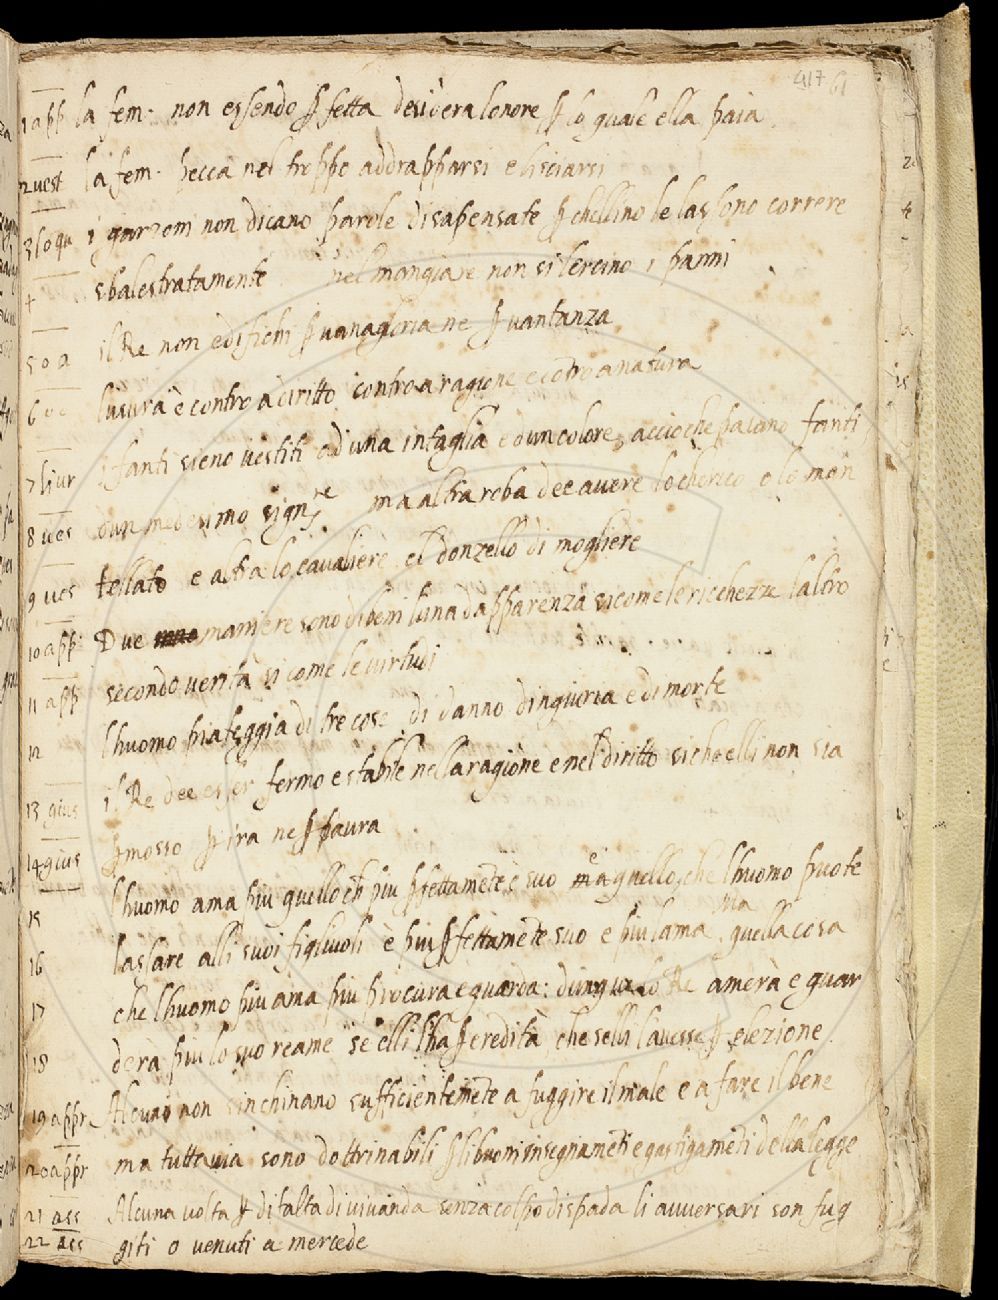 417 61
1 app la fem. non essendo ꝑfetta desidera lonore ꝑ lo quale ella paia
2 uest la fem. pecca nel troppo addrapparsi e lisciarsi
3 loqu i garzoni non dicano parole disapensate ꝑ chellino le lassono correre
sbalestratamente nel mangiare non si lercino i panni
5 il Re non edifichi ꝑ vanagloria ne ꝑ vantanza
6 lusura è contro a diritto contro a ragione e cotro a natura
7 liur i fanti sieno vestiti ad una intaglia e dun colore, accioche paiano fanti
8 ues dun medesimo signre ma altra roba dee avere lo cherico e lo man
9 ues tellato e altra lo cavaliere el donzello di mogliere
10 app Due maniere sono di beni luna dapparenza sicome le ricchezze laltro
11 app secondo verità si come le virtudi
12 lhuomo piateggia di tre cose di danno dingiuria e di morte
13 gius il Re dee esser fermo e stabile nella ragione e nel diritto siche elli non sia
14 gius ꝑmosso ꝑ ira ne ꝑ paura
15 lhuomo ama piu quello ch piu ꝑfettamēte è suo e quello, che lhuomo puote
16 lassare alli suoi figliuoli è piu ꝑfettamēte suo e piu lama. Ma quella cosa
17 che lhuomo piu ama piu procura e guarda: dunque lo Re amerà e guar
18 derà piu lo suo reame se elli lha ꝑ eredità che selli lavesse ꝑ elezione.
19 appr Alcuni non sinchinano sufficientemēte a fuggire il male e a fare il bene
20 appr ma tuttauia sono dottrinabili ꝑ li buoni insegnamēti e gastigamēti della legge
21 ass Alcuna volta ꝑ difalta di vivanda senza colpo di spada li avversari son fug
22 ass giti o venuti a mercede